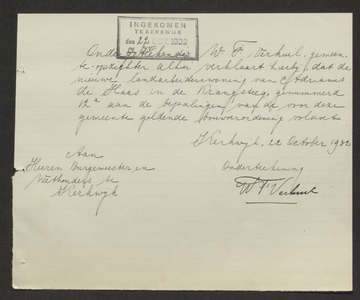 INGEKOMEN
TE KERKWIJK
den 22 1932
Ondergeteekende W. F. Verkuil, gemeen-
te-opzichter alhier verklaart hierbij dat de
nieuwe landarbeiderswoning van Adrianus
de Haas in de Krangsteeg, genummerd
12a aan de bepalingen van de voor deze
gemeente geldende bouwverordening voldoet
Kerkwijk, 22 October 1932
Aan
Heeren Burgemeester en
Wethouders te
Kerkwijk
Onderteekening
W F Verkuil